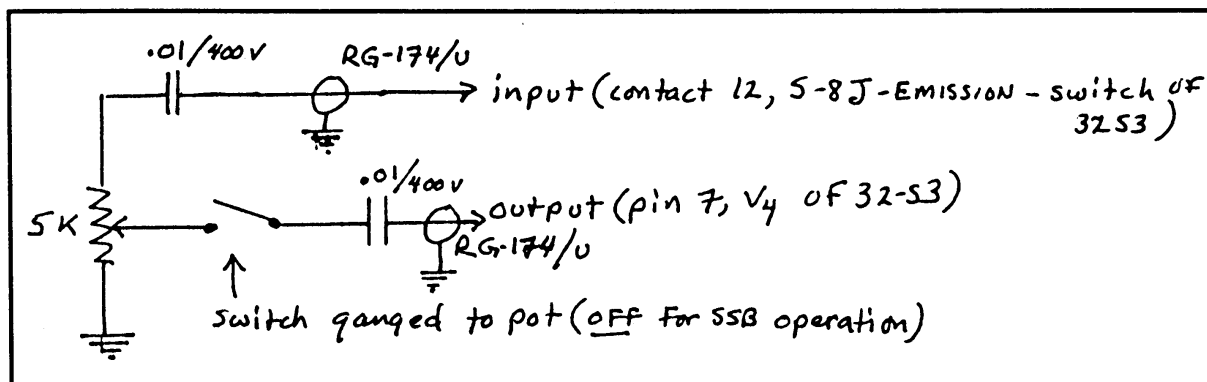 .01/400V
RG-174/U
input (contact 12, S-8J-EMISSION - switch OF
32S3)
.01/400V
output (pin 7, V4 of 32-S3)
5K
RG-174/U
switch ganged to pot (OFF for SSB operation)